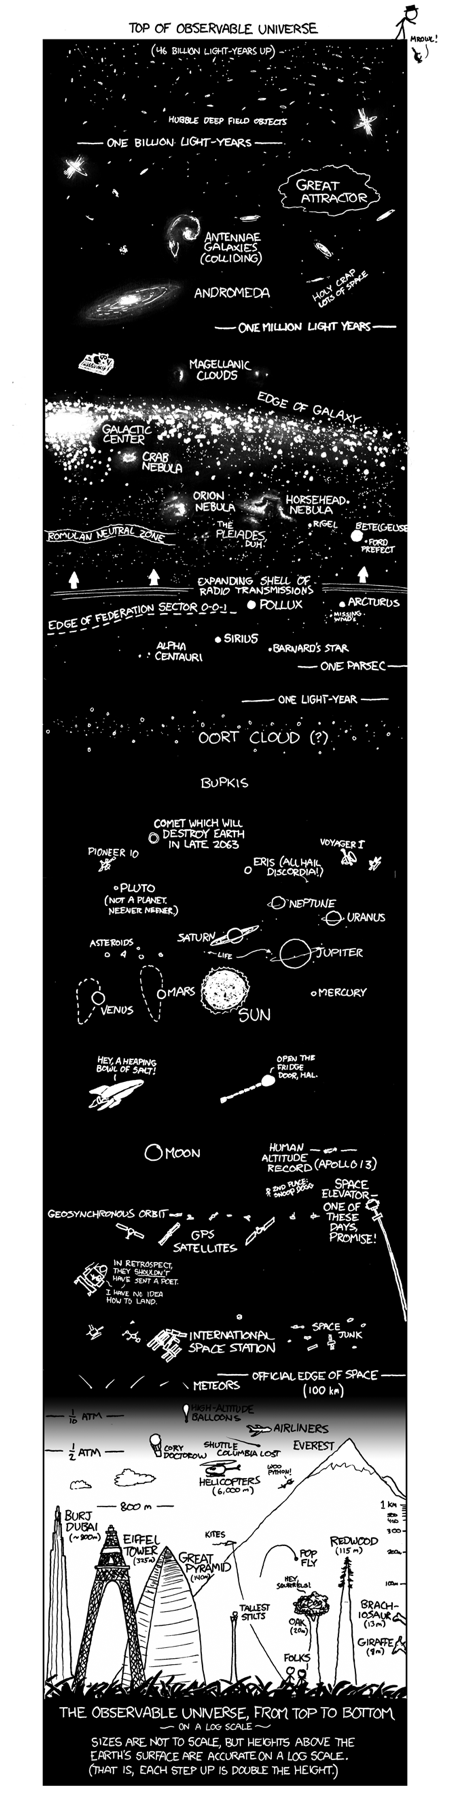 TOP OF OBSERVABLE UNIVERSE
MROWL!
(46 BILLION LIGHT-YEARS UP)
HUBBLE DEEP FIELD OBJECTS
ONE BILLION LIGHT-YEARS
GREAT
ATTRACTOR
ANTENNAE
GALAXIES
(COLLIDING)
HOLY CRAP
LOTS OF SPACE
ANDROMEDA
ONE MILLION LIGHT YEARS
MAGELLANIC
CLOUDS
EDGE OF GALAXY
GALACTIC
CENTER
CRAB
NEBULA
ORION
NEBULA
HORSEHEAD
NEBULA
THE
PLEIADES
DUH.
RIGEL
BETELGEUSE
FORD
PREFECT
ROMULAN NEUTRAL ZONE
EXPANDING SHELL OF
RADIO TRANSMISSIONS
EDGE OF FEDERATION SECTOR 0-0-1
POLLUX
ARCTURUS
MISSING
WMD'S
SIRIUS
ALPHA
CENTAURI
BARNARD'S STAR
ONE PARSEC
ONE LIGHT-YEAR
OORT CLOUD (?)
BUPKIS
COMET WHICH WILL
DESTROY EARTH
IN LATE 2063
PIONEER 10
VOYAGER I
ERIS (ALL HAIL
DISCORDIA!)
PLUTO
(NOT A PLANET.
NEENER NEENER.)
NEPTUNE
URANUS
SATURN
ASTEROIDS
LIFE
JUPITER
MARS
VENUS
SUN
MERCURY
HEY, A HEAPING
BOWL OF SALT!
OPEN THE
FRIDGE
DOOR, HAL.
MOON
HUMAN
ALTITUDE
RECORD (APOLLO 13)
2ND PLACE:
SNOOP DOGG
SPACE
ELEVATOR—
ONE OF
THESE
DAYS,
PROMISE!
GEOSYNCHRONOUS ORBIT
GPS
SATELLITES
IN RETROSPECT,
THEY SHOULDN'T
HAVE SENT A POET.
I HAVE NO IDEA
HOW TO LAND.
INTERNATIONAL
SPACE STATION
SPACE
JUNK
METEORS
OFFICIAL EDGE OF SPACE
(100 km)
1/10 ATM
HIGH-ALTITUDE
BALLOONS
AIRLINERS
1/2 ATM
CORY
DOCTOROW
SHUTTLE
COLUMBIA LOST
EVEREST
HELICOPTERS
(6,000 m)
WOO
PYTHON!
800 m
1 km
BURJ
DUBAI
(~800m)
EIFFEL
TOWER
(325m)
GREAT
PYRAMID
(140m)
KITES
POP
FLY
REDWOOD
(115 m)
300
200m
100m
TALLEST
STILTS
HEY,
SQUIRRELS!
OAK
(20m)
BRACH-
IOSAUR
(13m)
GIRAFFE
(8m)
FOLKS
THE OBSERVABLE UNIVERSE, FROM TOP TO BOTTOM
ON A LOG SCALE
SIZES ARE NOT TO SCALE, BUT HEIGHTS ABOVE THE
EARTH'S SURFACE ARE ACCURATE ON A LOG SCALE.
(THAT IS, EACH STEP UP IS DOUBLE THE HEIGHT.)